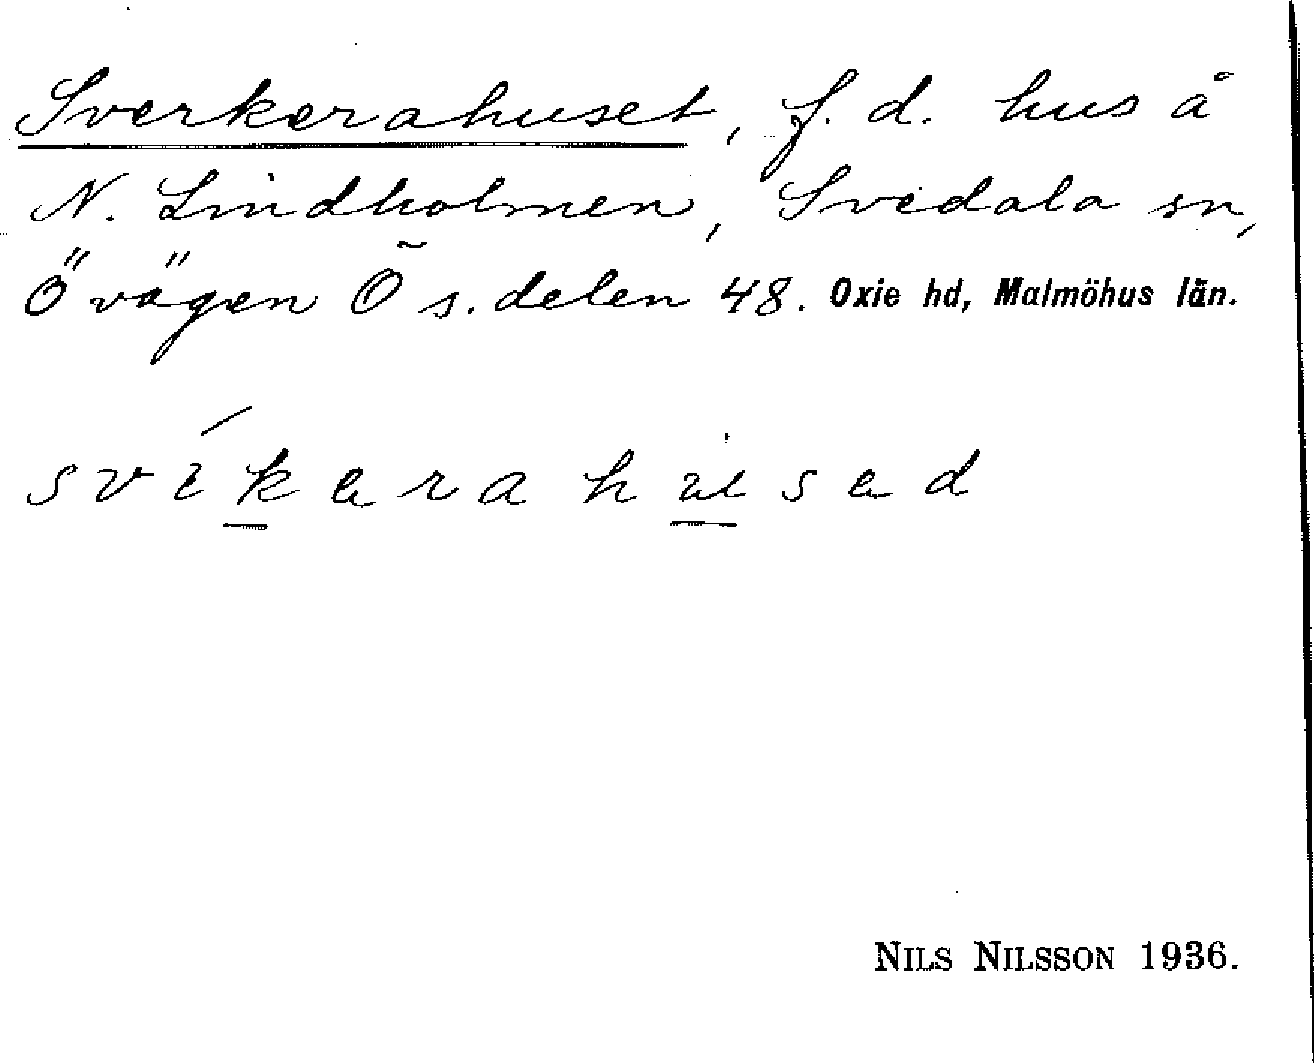 Sverkerahuset, f. d. hus å
N. Lindholmen, Svedala sn,
Ö vägen Õ s. delen 48. Oxie hd, Malmöhus län.
svíkarahusad
NILS NILSSON 1936.